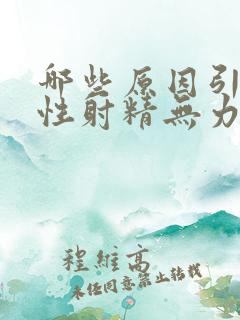 哪些原因引
性射精無力
程維高
未经同意禁止转载